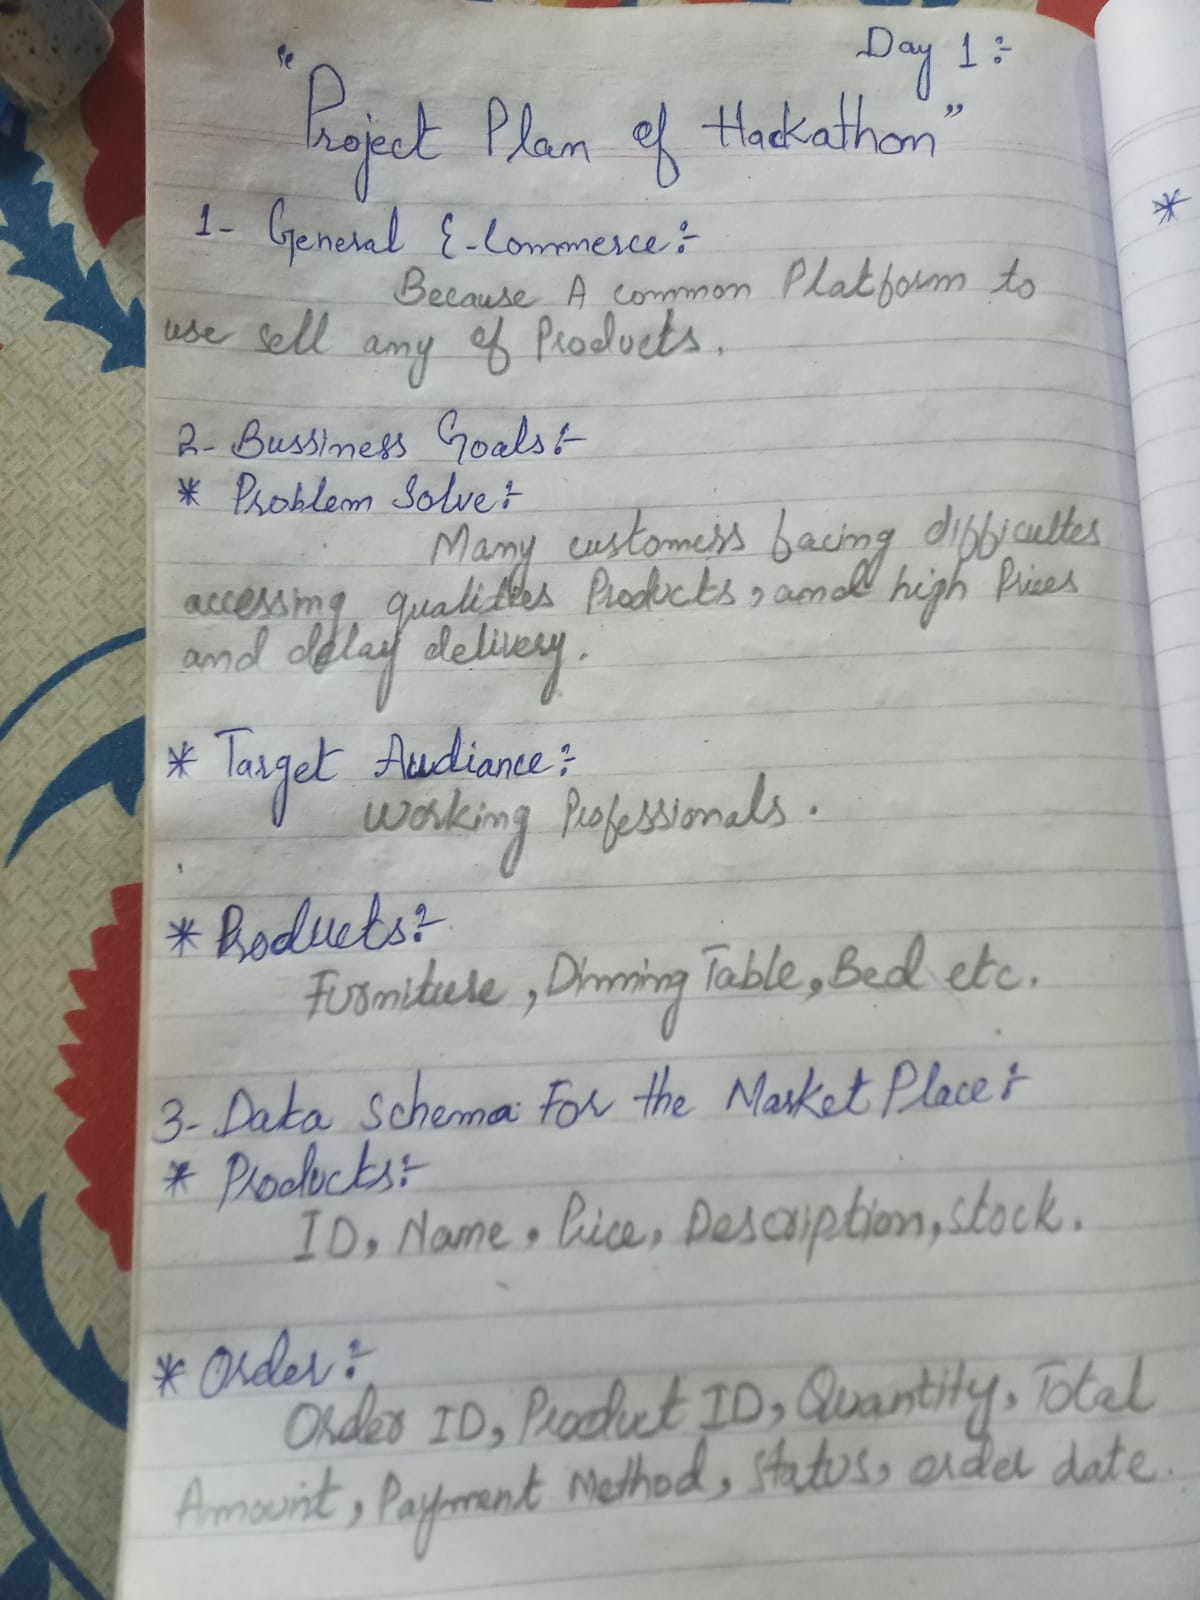 Day 1:-
"Project Plan of Hackathon"
1- General E-Commerce:-
Because A common Platform to
use sell any of Products.
2- Bussiness Goals:-
* Problem Solve:-
Many customers facing difficultes
accessing qualities Products, and high Prices
and delay delivery.
* Target Audiance:-
Working Professionals.
* Products:-
Furniture, Dinning Table, Bed etc.
3- Data Schema For the Market Place:-
* Products:-
ID, Name, Price, Description, Stock.
* Order:-
Order ID, Product ID, Quantity, Total
Amount, Payment Method, Status, order date.
*